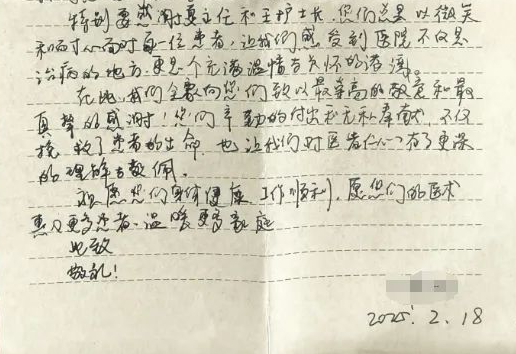 特别要感谢夏主任和王护士长,您们总是以微笑
和耐心面对每一位患者,让我们感受到医院不仅是
治病的地方,更是个充满温情与关怀的港湾。
在此,我们全家向您们致以最崇高的敬意和最
真挚的感谢!您们辛勤的付出和无私奉献,不仅
挽救了患者的生命,也让我们对医者仁心有了更深
的理解与敬佩。
祝愿您们身体健康,工作顺利,愿您们的医术
惠及更多患者,温暖更多家庭
此致
敬礼!
2025.2.18